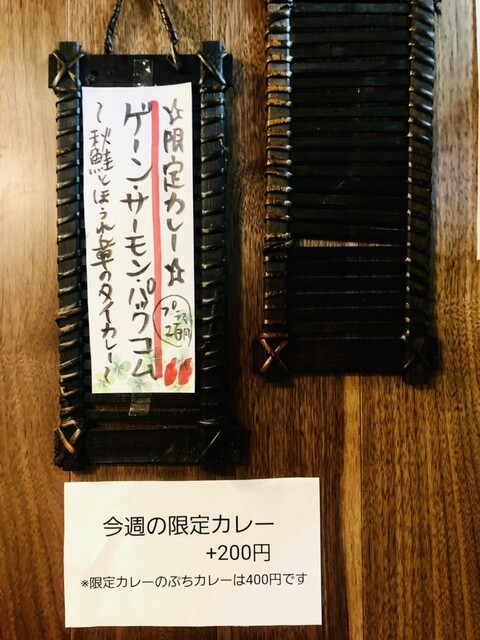 ☆限定カレー☆
プラス
200円
ゲーン・サーモン・パックコム
〜秋鮭とほうれん草のタイカレー〜
今週の限定カレー
+200円
※限定カレーのぷちカレーは400円です